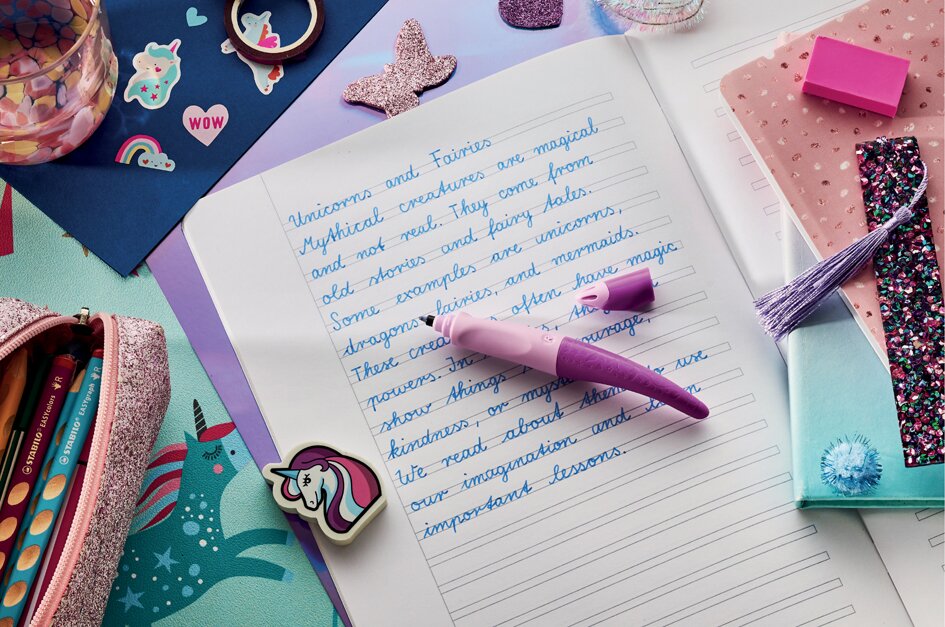 WOW
Unicorns and Fairies
Mythical creatures are magical
and not real. They come from
old stories and fairy tales.
Some examples are unicorns,
dragons, fairies, and mermaids.
These often have magic
powers. In
show things courage,
kindness, or
We read about them to use
our imagination and learn
important lessons.
STABILO EASYcolors
STABILO EASYgraph